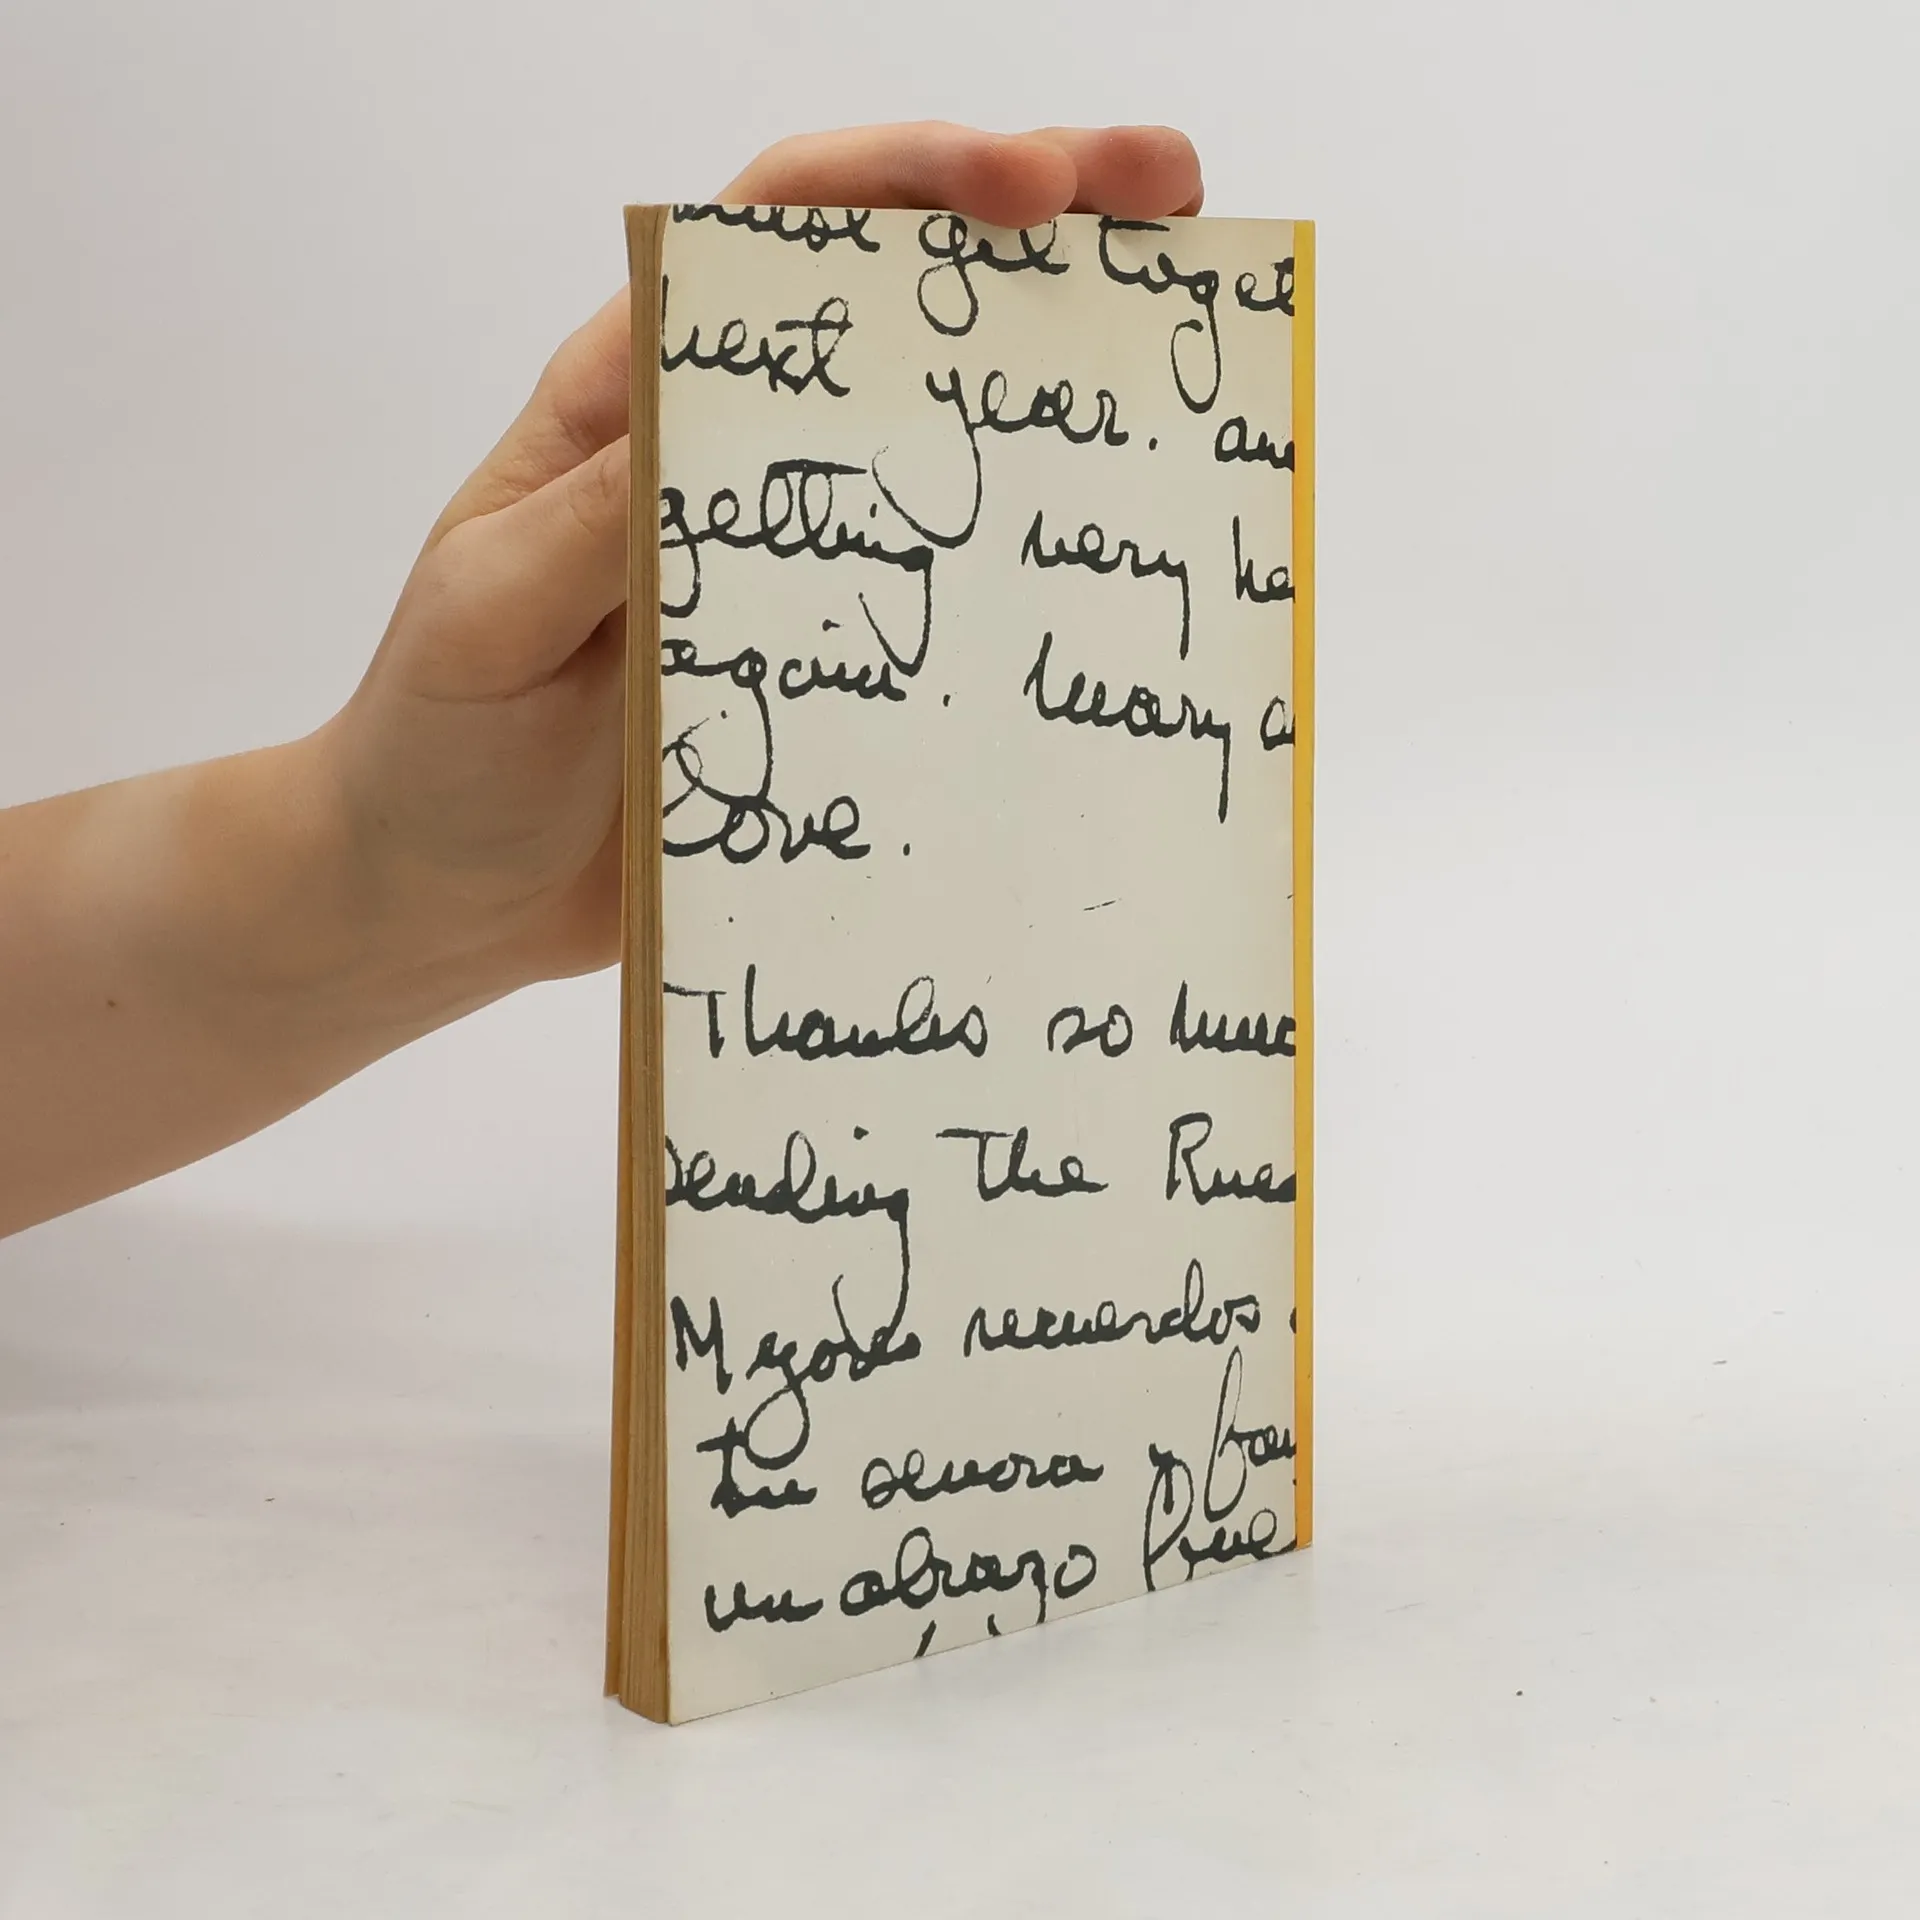 must get toget
next year. and
getting very he
again. Mary a
Love.
Thanks so muc
sending the Rus
Mejores recuerdos
tu senora y fam
un abrazo